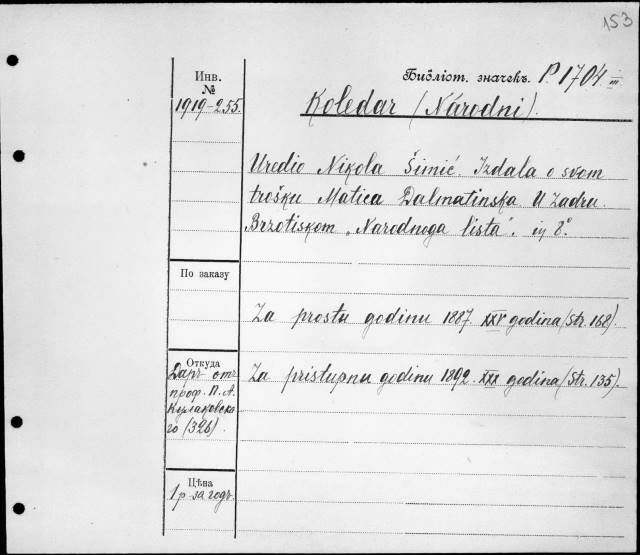 153
Инв.
№
1919-255.
Библіот. значекъ. P. 1704 III
Koledar (Národni).
Uredio Nikola Šimić. Izdala o svom
trošku Matica Dalmatinska. U Zadru.
Brzotiskom „Narodnoga lista“. 8°.
По заказу
Za prostu godinu 1887. XXV godina (str. 168).
Откуда
Даръ отъ
проф. П. А.
Кулаковска-
го (326).
Za pristupnu godinu 1892. XXX godina (str. 135).
Цѣна
1 р. за годъ.